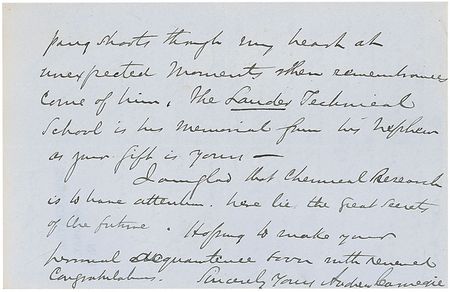 pang shoots though my heart at
unexpected moments when remembrances
come of him. The Lauder Technical
School is his memorial from his Nephew
as your gift is yours —
I am glad that Chemical Research
is to have attention. here lie the great secrets
of the future. Hoping to make your
personal acquaintance soon with renewed
Congratulations. Sincerely Yours Andrew Carnegie